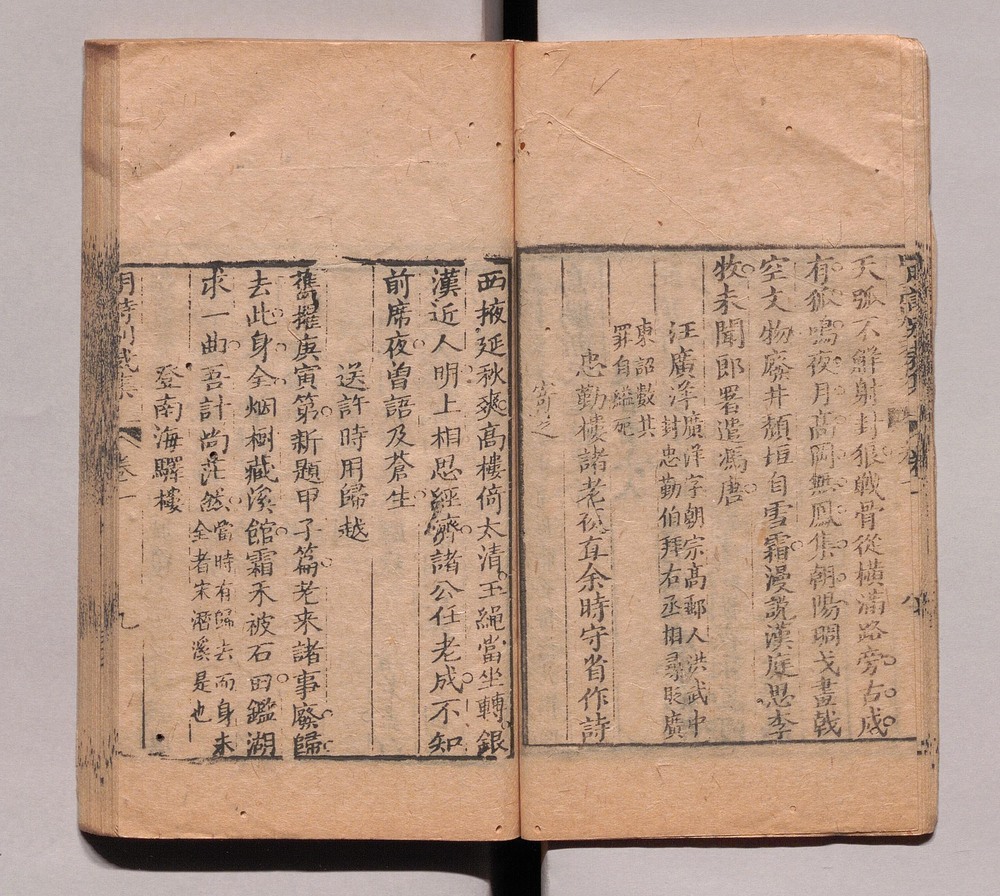 天弧不鮮射封狼戰骨從橫滿路旁古戍
有狐鳴夜月高岡無鳳集朝陽琱戈畫戟
空文物廢井頹垣自雪霜漫說漢庭思李
牧未聞郎署遣馮唐
汪廣洋
廣洋字朝宗高郵人洪武中
封忠勤伯拜右丞相尋貶廣
東詔數其
罪自縊死
忠勤樓諸老夜直余時守省作詩
寄之
西掖延秋爽高樓倚太清玉繩當坐轉銀
漢近人明上相思經濟諸公任老成不知
前席夜曾語及蒼生
送許時用歸越
舊擢庚寅第新題甲子篇老來諸事廢歸
去此身全烟樹藏溪館霜禾被石田鑑湖
求一曲吾計尚茫然
當時有歸去而身未
全者宋濳溪是也
登南海驛樓
卷一
九